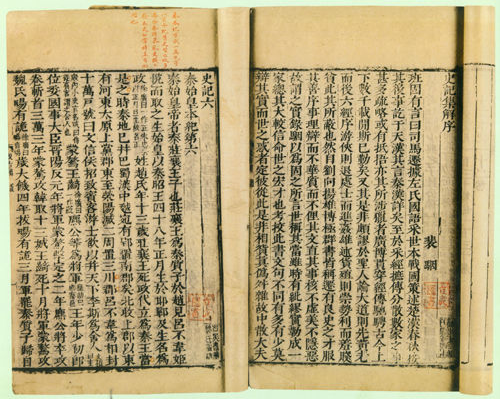 史記集解序
裴駰
班固有言曰司馬遷據左氏國語采世本戰國策述楚漢春秋接
其後事訖于天漢其言秦漢詳矣至於采經摭傳分散數家之事
甚多疎略或有抵捂亦其所涉獵者廣博貫穿經傳馳騁古今上
下數千載間斯已勤矣又其是非頗謬於聖人論大道則先黃老
而後六經序游俠則退處士而進姦雄述貨殖則崇勢利而羞賤
貧此其所蔽也然自劉向揚雄博極群書皆稱遷有良史之才服
其善序事理辯而不華質而不俚其文直其事核不虛美不隱惡
故謂之實錄駰以為固之所言世稱其當雖時有紕繆實勒成一
家總其大較信命世之宏才也考校此書文句不同有多有少莫
辯其實而世之惑者定彼從此是非相貿真偽舛雜故中散大夫
史記六
秦始皇本紀第六
秦始皇帝者秦莊襄王子也莊襄王為秦質子於趙見呂不韋姬
悅而取之生始皇以秦昭王四十八年正月生於邯鄲及生名為
政姓趙氏年十三歲莊襄王死政代立為秦王當
是之時秦地已并巴蜀漢中越宛有郢置南郡矣北收上郡以東
有河東太原上黨郡東至滎陽滅二周置三川郡呂不韋為相封
十萬戶號曰文信侯招致賓客游士欲以并天下李斯為舍人
蒙驁王齮麃公等為將軍王年少初即
位委國事大臣晉陽反元年將軍蒙驁擊定之二年麃公將卒攻
卷斬首三萬三年蒙驁攻韓取十三城王齮死十月將軍蒙驁攻
魏氏畼有詭歲大饑四年拔畼有詭三月軍罷秦質子歸自